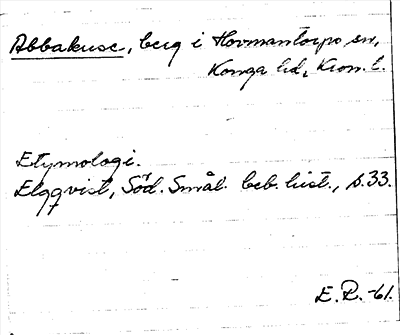 Abbakuse, berg i Hovmantorps sn,
Konga hd, Kron. l.
Etymologi.
Elgqvist, Söd. Smål. beb. hist., s. 33.
E. P. -61.